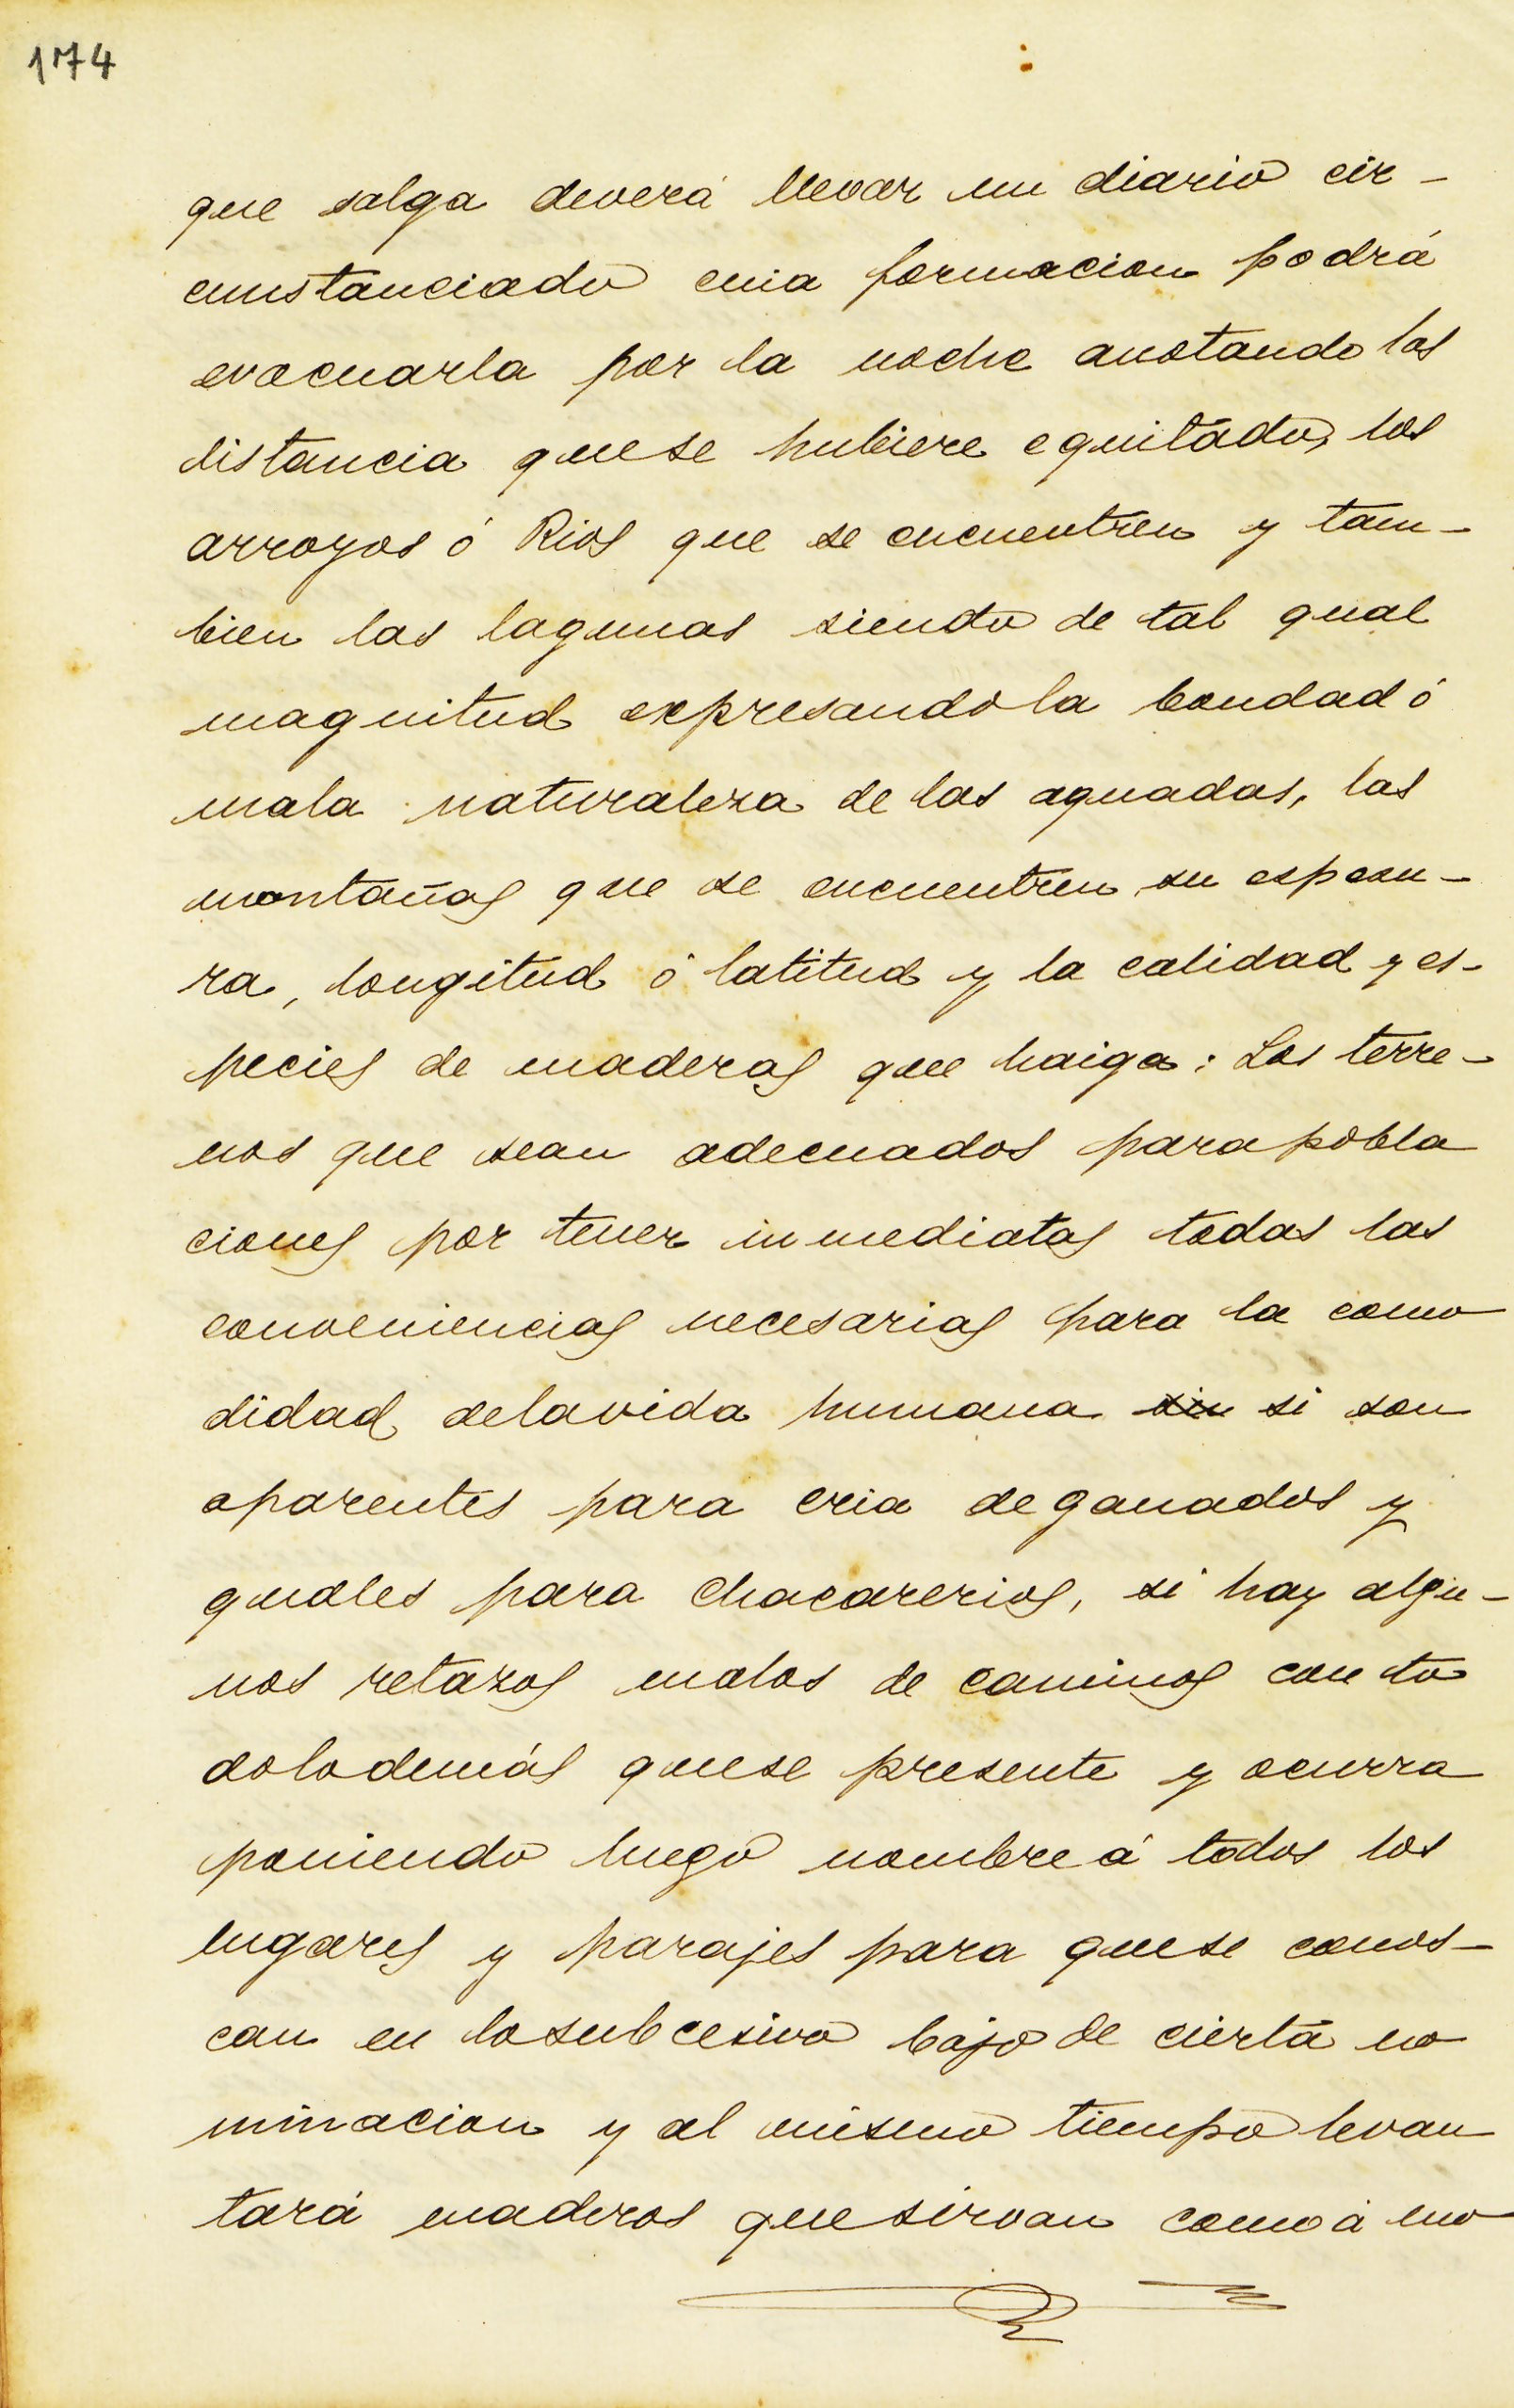 174
que salga deverá llevar un diario cir-
cunstanciado cuia formacion podrá
evacuarla por la noche anotando las
distancia quese hubiere equitado, los
arroyos ó Rios que se encuentren y tam-
bien las lagunas siendo de tal qual
magnitud expresandola bondad ó
mala naturaleza de las aguadas, las
montañas que se encuentren su espesu-
ra, longitud ó latitud y la calidad y es-
pecies de maderas que haiga: Los terre-
nos que sean adecuados parapobla
ciones por tener inmediatas todas las
conveniencias necesarias para la como
didad delavida humana sin si son
aparentes para cria deganados y
quales para Chacarerias, si hay algu-
nos retazos malos de caminos con to
dolodemás quese presente y ocurra
poniendo luego nombre á todos los
lugares y parajes para quese conos-
can en losubcesivo bajo de cierta no
minacion y al mismo tiempo levan
tará maderos quesirvan como á mo